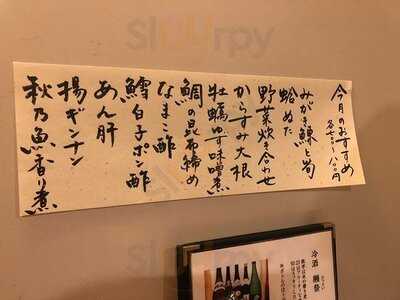 今月のおすすめ
各七00〜八00円
みがき鰊と筍
蛤ぬた
野菜炊き合わせ
からすみ大根
牡蠣ゆず味噌煮
鯛の昆布締め
なまこ酢
鱈白子ポン酢
あん肝
揚ギンナン
秋乃魚香り煮
冷酒